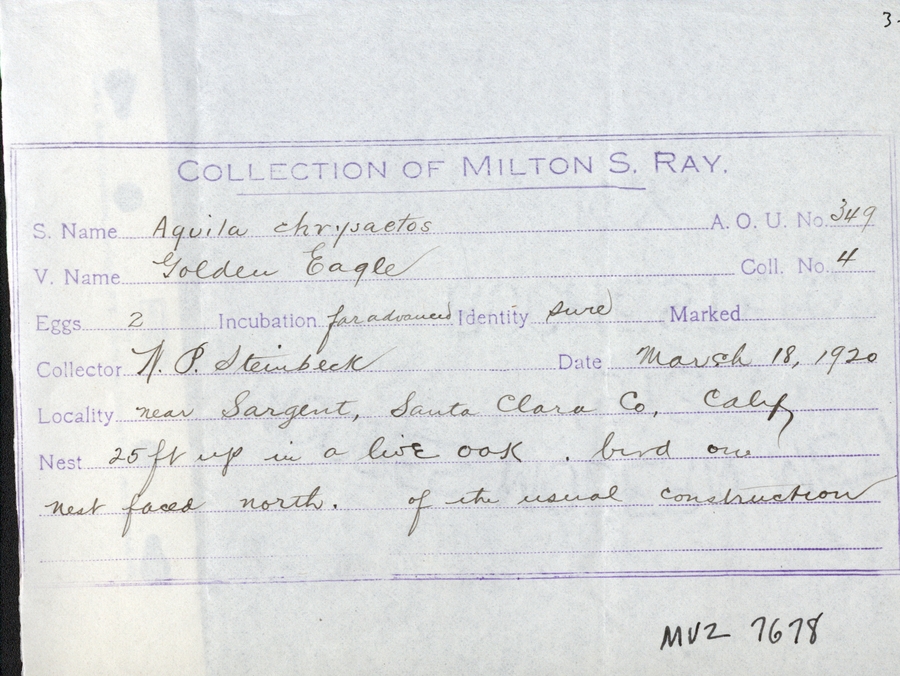 3-
COLLECTION OF MILTON S. RAY.
S. Name Aquila chrysaetos A. O. U. No. 349
V. Name Golden Eagle Coll. No. 4
Eggs 2 Incubation far advanced Identity sure Marked
Collector P. Steinbeck Date March 18, 1920
Locality near Sargent, Santa Clara Co, Calif
Nest 25 ft up in a live oak . bird on
nest faced north. of the usual construction
MVZ 7678